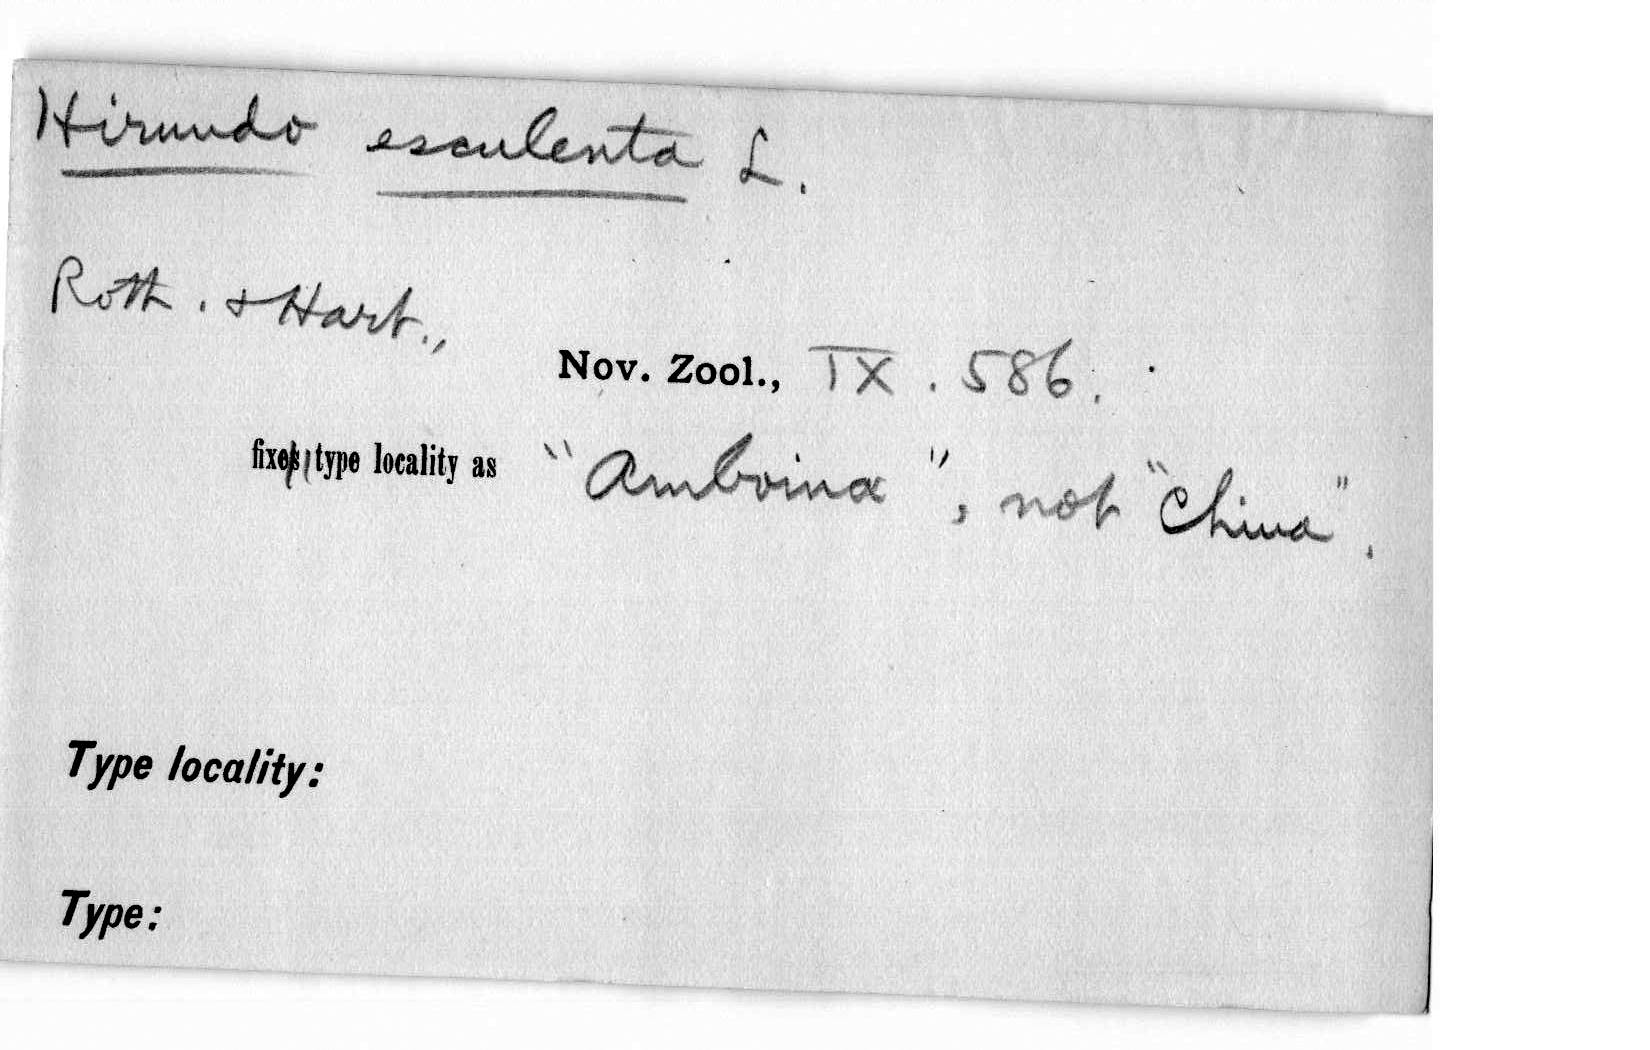 Hirundo esculenta L.
Roth. & Hart.,
Nov. Zool., IX. 586.
fixe type locality as "Amboina", not "China".
Type locality:
Type: